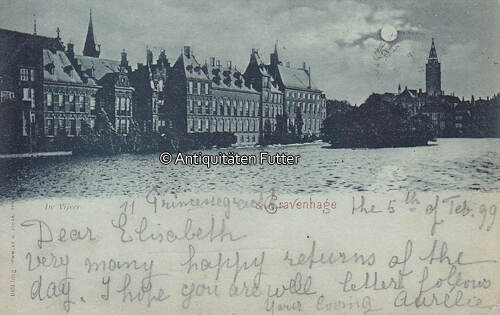 © Antiquitäten Futter
De Vijver
's Gravenhage
11 Princessegracht
the 5th of Feb. 99
Dear Elisabeth
very many happy returns of the
day. I hope you are well letter follows
Your loving Aurelie